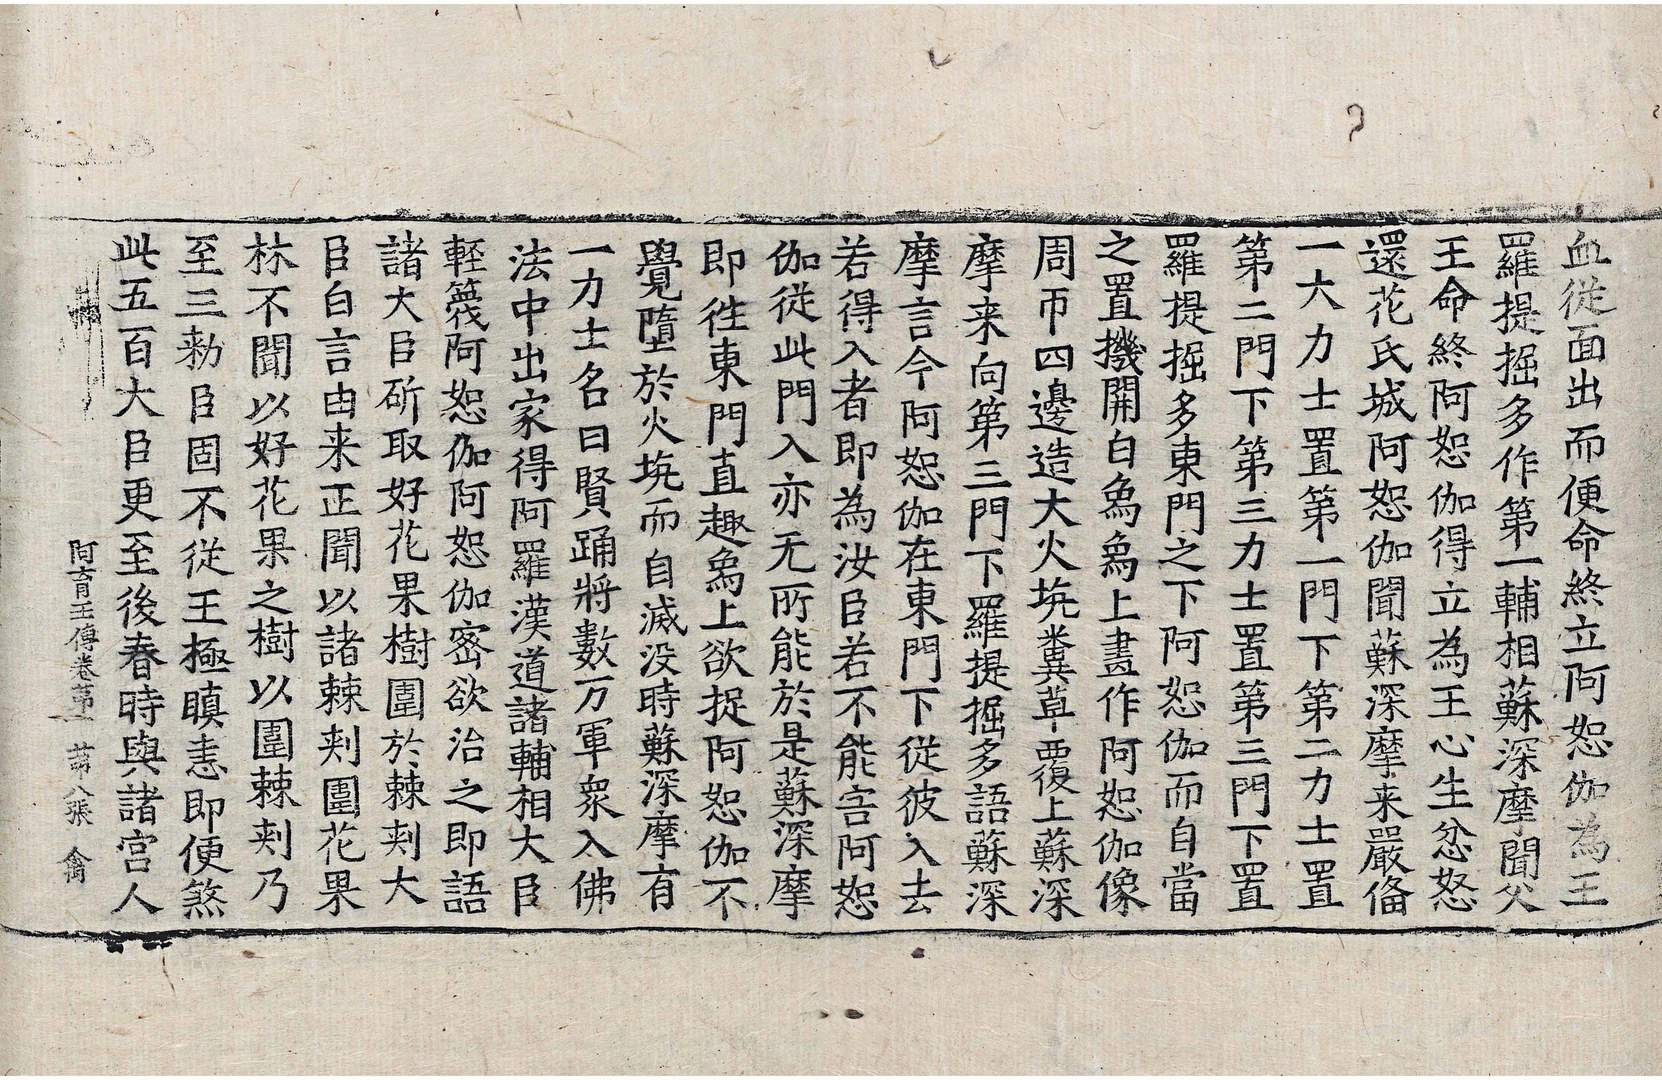 血從面出而便命終立阿恕伽為王
羅提掘多作第一輔相蘇深摩聞父
王命終阿恕伽得立為王心生忿怒
還花氏城阿恕伽聞蘇深摩来嚴俻
一大力士置第一門下第二力士置
第二門下第三力士置第三門下置
羅提掘多東門之下阿恕伽而自當
之置機開白象象上畫作阿恕伽像
周帀四邊造大火坑糞草覆上蘇深
摩来向第三門下羅提掘多語蘇深
摩言今阿恕伽在東門下從彼入去
若得入者即為汝臣若不能害阿恕
伽從此門入亦无所能於是蘇深摩
即徃東門直趣象上欲捉阿恕伽不
覺墮於火坑而自滅没時蘇深摩有
一力士名曰賢踊將數万軍衆入佛
法中出家得阿羅漢道諸輔相大臣
輕篾阿恕伽阿恕伽密欲治之即語
諸大臣斫取好花果樹圍於棘刾大
臣白言由来正聞以諸棘刾圍花果
林不聞以好花果之樹以圍棘刾乃
至三勑臣固不從王極瞋恚即便煞
此五百大臣更至後春時與諸宫人
阿育王傳卷第一 苐八張 禽